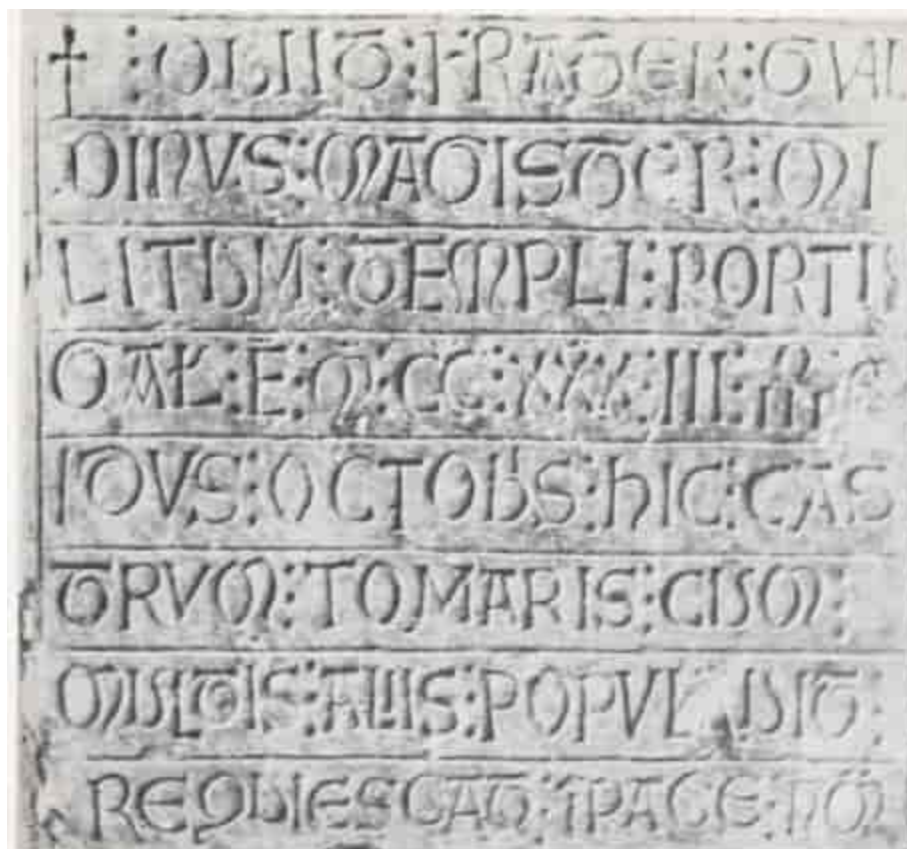 † : OBIIT : FRATER : GVAL
DINVS : MAGISTER : MI
LITUM : TEMPLI : PORTU
GAL : E : M : CC : XXX : III :
IDVS : OCTOBS : HIC : CAS
TRVM : TOMARIS : CUM :
MULTIS : ALIIS : POPVL UIT :
REQUIESCAT : IPACE :